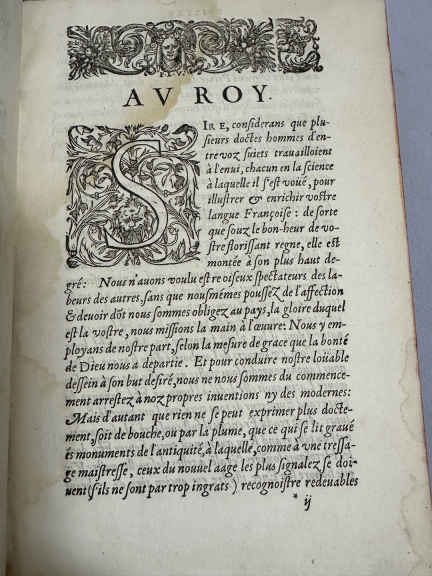 AV ROY.
SIRE, considerans que plu-
sieurs doctes hommes d'en-
tre voz suiets trauailloient
à l'enui, chacun en la science
à laquelle il s'est voüé, pour
illustrer & enrichir vostre
langue Françoise: de sorte
que souz le bon-heur de vo-
stre florissant regne, elle est
montée à son plus haut de-
gré: Nous n'auons voulu estre oiseux spectateurs des la-
beurs des autres, sans que nousmémes poussez de l'affection
& deuoir dõt nous sommes obligez au pays, la gloire duquel
est la vostre, nous missions la main à l'œuure: Nous y em-
ployans de nostre part, selon la mesure de grace que la bonté
de Dieu nous a departie. Et pour conduire nostre loüable
dessein à son but desiré, nous ne nous sommes du commence-
ment arrestez à noz propres inuentions ny des modernes:
Mais d'autant que rien ne se peut exprimer plus docte-
ment, soit de bouche, ou par la plume, que ce qui se lit graué
és monuments de l'antiquité, à laquelle, comme à vne tressa-
ge maistresse, ceux du nouuel aage les plus signalez se doi-
uent (s'ils ne sont par trop ingrats) recognoistre redeuables
* ij